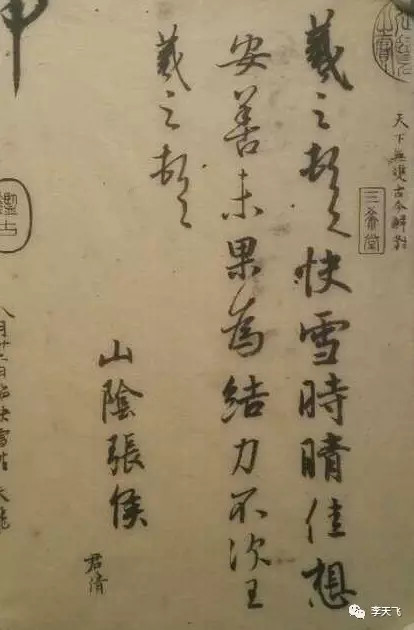 天下無雙古今鮮對
三希堂
羲之頓首快雪時晴佳想
安善未果為結力不次王
羲之頓首
山陰張侯
君倩
鑑古
八月廿二日臨快雪帖 天飛
李天飞